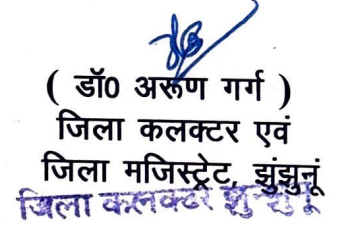 ( डॉ0 अरूण गर्ग )
जिला कलक्टर एवं
जिला मजिस्ट्रेट, झुंझुनूं
जिला कलक्टर झुन्झुनू